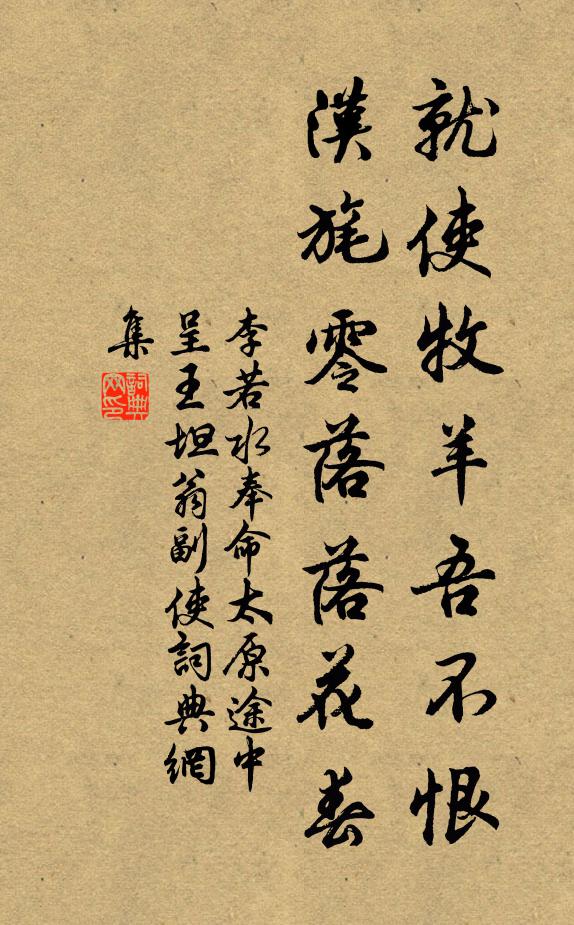 就使牧羊吾不恨
漢旄零落落花春
李若水奉命太原途中
呈王坦翁副使詞典網
集
詞典網印